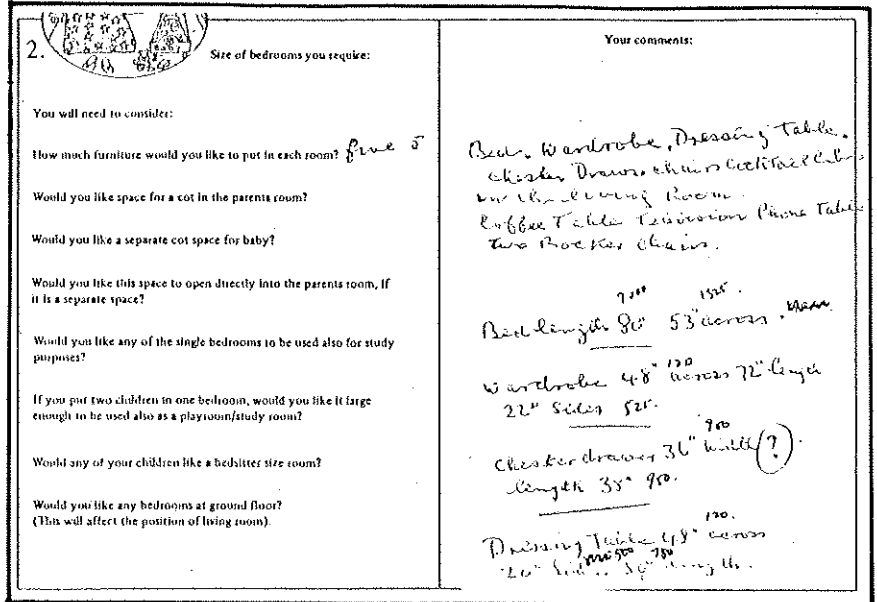 2.
Size of bedrooms you require:
You will need to consider:
How much furniture would you like to put in each room? five 5
Would you like space for a cot in the parents room?
Would you like a separate cot space for baby?
Would you like this space to open directly into the parents room, If
it is a separate space?
Would you like any of the single bedrooms to be used also for study
purposes?
If you put two children in one bedroom, would you like it large
enough to be used also as a playroom/study room?
Would any of your children like a bedsitter size room?
Would you like any bedrooms at ground floor?
(This will affect the position of living room).
Your comments:
Bed. Wardrobe, Dressing Table.
Chester Draws. chairs Cocktail
in the Living Room.
Coffee Table Television Phone Table
two Rocker Chairs.
1325.
Bed length 80" 53" across.
Wardrobe 48" across 72" length
22" Sides 525.
900
Chester drawer 36" width (?).
length 38" 950.
120.
Dressing Table 48" across
length.